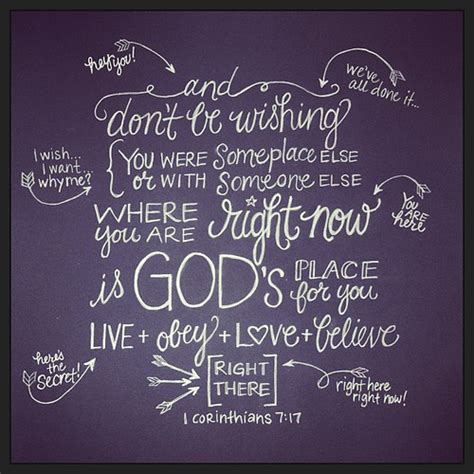 hey you!
and
we've
all done it...
don't be wishing
I wish...
I want..
why me?
YOU WERE Someplace ELSE
or WITH Someone ELSE
WHERE
you ARE
right now
You
ARE
here
is GOD'S PLACE
for you
LIVE + obey + LOVE + believe
here's
the
secret!
[RIGHT
THERE]
right here
right now!
1 corinthians 7:17